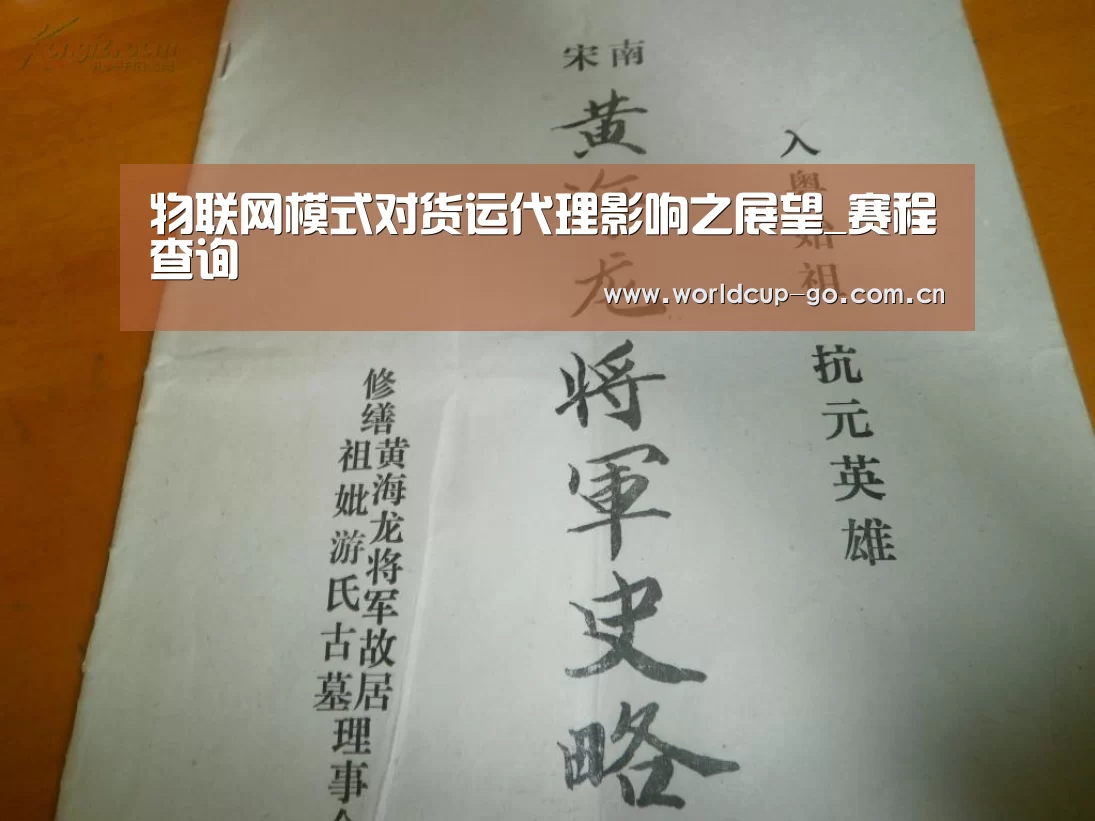 物联网模式对货运代理影响之展望_赛程
查询
www.worldcup-go.com.cn
入粤始祖
抗元英雄
南宋
黄海龙将軍史略
修缮
黄海龙将军故居
祖妣游氏古墓
理事